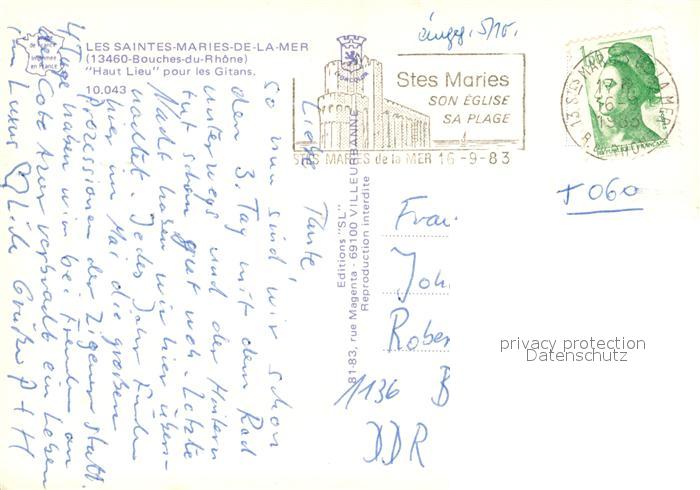 LES SAINTES-MARIES-DE-LA-MER
(13460-Bouches-du-Rhône)
"Haut Lieu" pour les Gitans.
10.043
Stes Maries
SON ÉGLISE
SA PLAGE
STES MARIES de la MER 16-9-83
Editions "S.L"
81-83, rue Magenta - 69100 VILLEURBANNE
Reproduction interdite
eingeg. 5/10.
Liebe Tante,
so nun sind wir schon
den 3. Tag mit dem Rad
unterwegs und der Hintern
tut schon gut weh. Letzte
Nacht haben wir hier über-
nachtet. Jedes Jahr finden
hier im Mai die großen
Prozessionen der Zigeuner statt.
4 Tage haben wir bei Freunden an
der Cote Azur verbracht ein Leben
im Luxus
Liebe Grüße P + H
Frau
Joh
Rober
1136 B
DDR
+ 060
privacy protection
Datenschutz